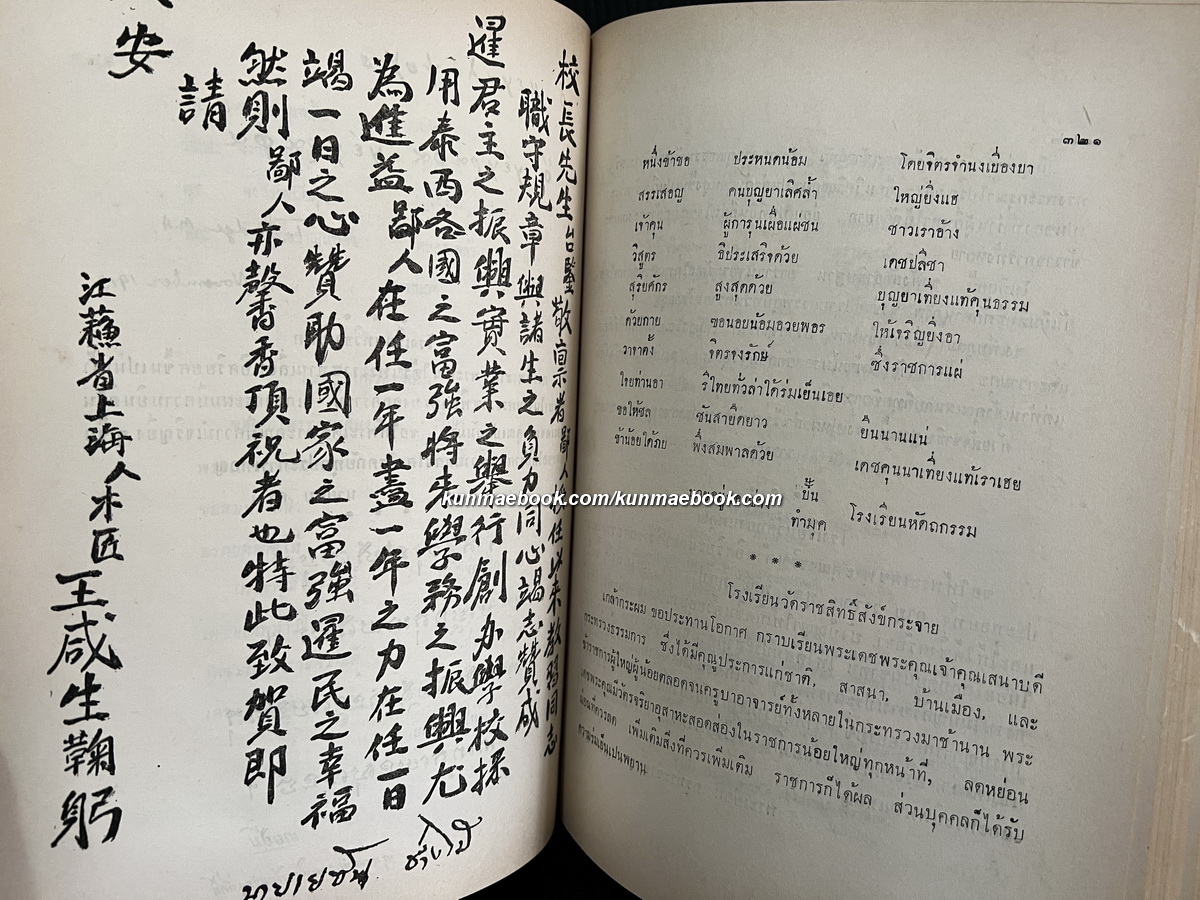 校長先生台鑒敬稟者鄙人接任以來教習同志
職守規章與諸生之負力同心竭志贊成
暹君主之振興實業之舉行創办學校採
用泰西各國之富強將來學務之振興尤
為進益鄙人在任一年盡一年之力在任一日
竭一日之心贊助國家之富強暹民之幸福
然則鄙人亦馨香頂祝者也特此致賀即
請
安
江蘇省上海人木匠王咸生鞠躬
๓๒๑
หนึ่งข้าขอ ประหนดน้อม โดยจิตรจำนงเยื่องยา
สรรเสอญ คนบุญยาเลิศล้ำ ใหญ่ยิ่งแฮ
เจ้าคุน ผู้การุนเผื่อแผ่ชน ชาวเราอ้าง
วิสูตร ธิประเสริจด้วย เดชปลิชา
สุริยศักร สูงสุดด้วย บุญยาเที่ยงแท้คุนธรรม
ด้วยกาย ซอนอยน้อมอวยพอร ให้เจริญยิ่งอา
วาจาตั้ง จิตรจงรักษ์ ซึ่งราชการแผ่
ไทยท่านอา รีไทยทั่วล่าใต้ร่มเย็นเอย
ขอให้ชล ชันสายืดยาว ยืนนานแน่
ข้าน้อยได้ภัย พึ่งสมพาลด้วย เดชคุนนาเที่ยงแท้เราเฮย
ปั้น
ทำมุค โรงเรียนหัดถกรรม
* * *
โรงเรียนวัดราชสิทธิ์สังข์กระจาย
เกล้ากระผม ขอประทานโอกาศ กราบเรียนพระเดชพระคุณเจ้าคุณเสนาบดี
กระทรวงธรรมการ ซึ่งได้มีคุณูประการแก่ชาติ, สาสนา, บ้านเมือง, และ
ข้าราชการผู้ใหญ่ผู้น้อยตลอดจนครูบาอาจารย์ทั้งหลายในกระทรวงมาช้านาน พระ
เดชพระคุณมีวัตรจริยาอุสาหะสอดส่องในราชการน้อยใหญ่ทุกหน้าที่, ลดหย่อน
ผ่อนที่ควรลด เพิ่มเติมสิ่งที่ควรเพิ่มเติม ราชการก็ได้ผล ส่วนบุคคลก็ได้รับ
ความร่มเย็นเป็นพยาน
kunmaebook.com/kunmaebook.com